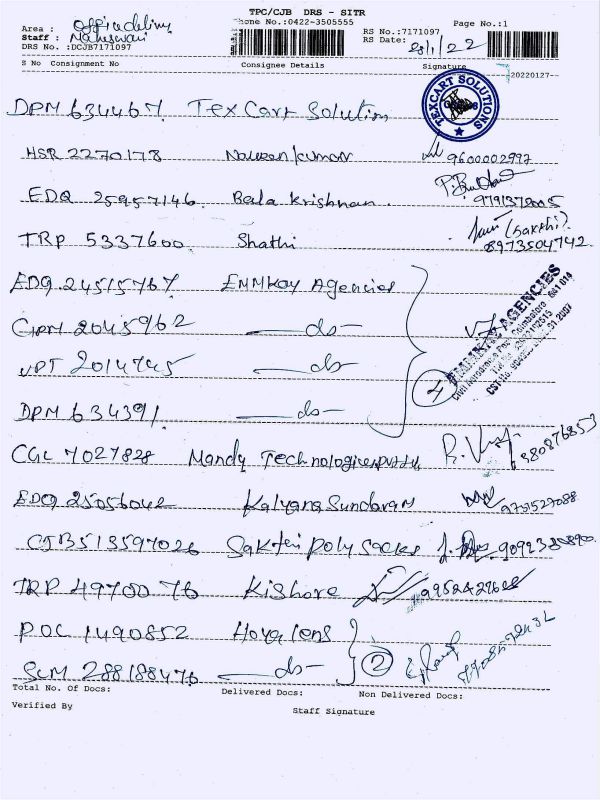 TPC/CJB DRS - SITR
Phone No.:0422-3505555 Page No.:1
Area : Office delivery
Staff : Maheswari RS No.:7171097
DRS No. :DCJB7171097 RS Date: 28/1/22
S No Consignment No Consignee Details Signature
20220127
DPM 634467 Tex Cart Solution
TEXCART SOLUTIONS
HSR 2270178 Naveen kumar 9600002997
EDQ 25957146 Bala Krishnan. 9791372005
TRP 5337600 Shathi (Sakthi) 8973504742
EDQ 24515767 EMMKay Agencies
GPM 2045962 —do—
AGENCIES
VPT 2014745 —do— 4
DPM 634391 —do—
CGL 7027828 Mandy Technologies pvt ltd 380876853
EDQ 25056042 Kalyana Sundaram 9751529088
CJB513597026 Sakthi Poly Sacks
TRP 4970076 Kishore
POC 1490852 Hoya lens
SCM 288188476 —do— 2
Total No. Of Docs: Delivered Docs: Non Delivered Docs:
Verified By Staff Signature